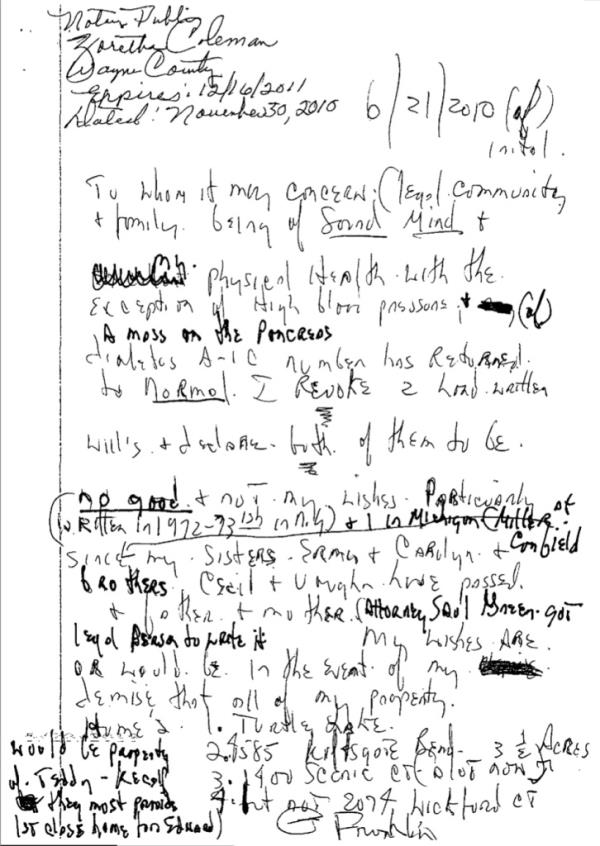 Notary Public
Zoretha Coleman
Wayne County
Expires: 12/16/2011
Dated: November 30, 2010
6/21/2010 (af)
inital.
To whom it may concern; (legal community
+ family. being of Sound Mind +
physical Health with the
exception of High blood pressure; + (af)
A mass on the Pancreas
diabetes A-1C number has Returned
to Normal. I Revoke 2 hand written
will's + declare both of them to be
no good + not my wishes. Particularly
(written in 1972-73 in N.Y) + 1 in Michigan (Miller of
Canfield
since my sisters Erma + Carolyn +
brothers Cecil + Vaughn have passed.
+ father + mother. (Attorney Saul Green got
legal person to write it
My wishes are
or would be in the event of my
demise that all of my property.
Home's 1. Turtle Lake
would be property 2. 4585 Kiftsgate Bend - 3 1/2 Acres
of Teddy - Kecalf 3. 1400 Scenic Ct
they must provide 4. but not 2074 Wickford Ct
1st close home for Edward)
Franklin